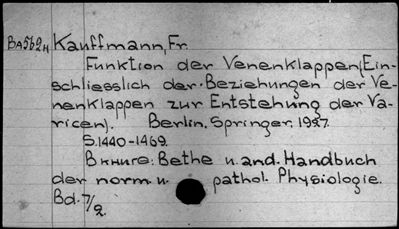 BA562H Kauffmann, Fr.
Funktion der Venenklappen (Ein-
schliesslich der Beziehungen der Ve-
nenklappen zur Entstehung der Va-
ricen). Berlin, Springer, 1927.
S. 1440-1469.
В книге: Bethe u. and. Handbuch
der norm. u. pathol. Physiologie.
Bd. 7/2.